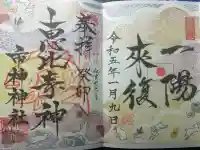 一陽
来復
令和五年一月九日
奉拝
癸卯
恵比寿神
市神神社